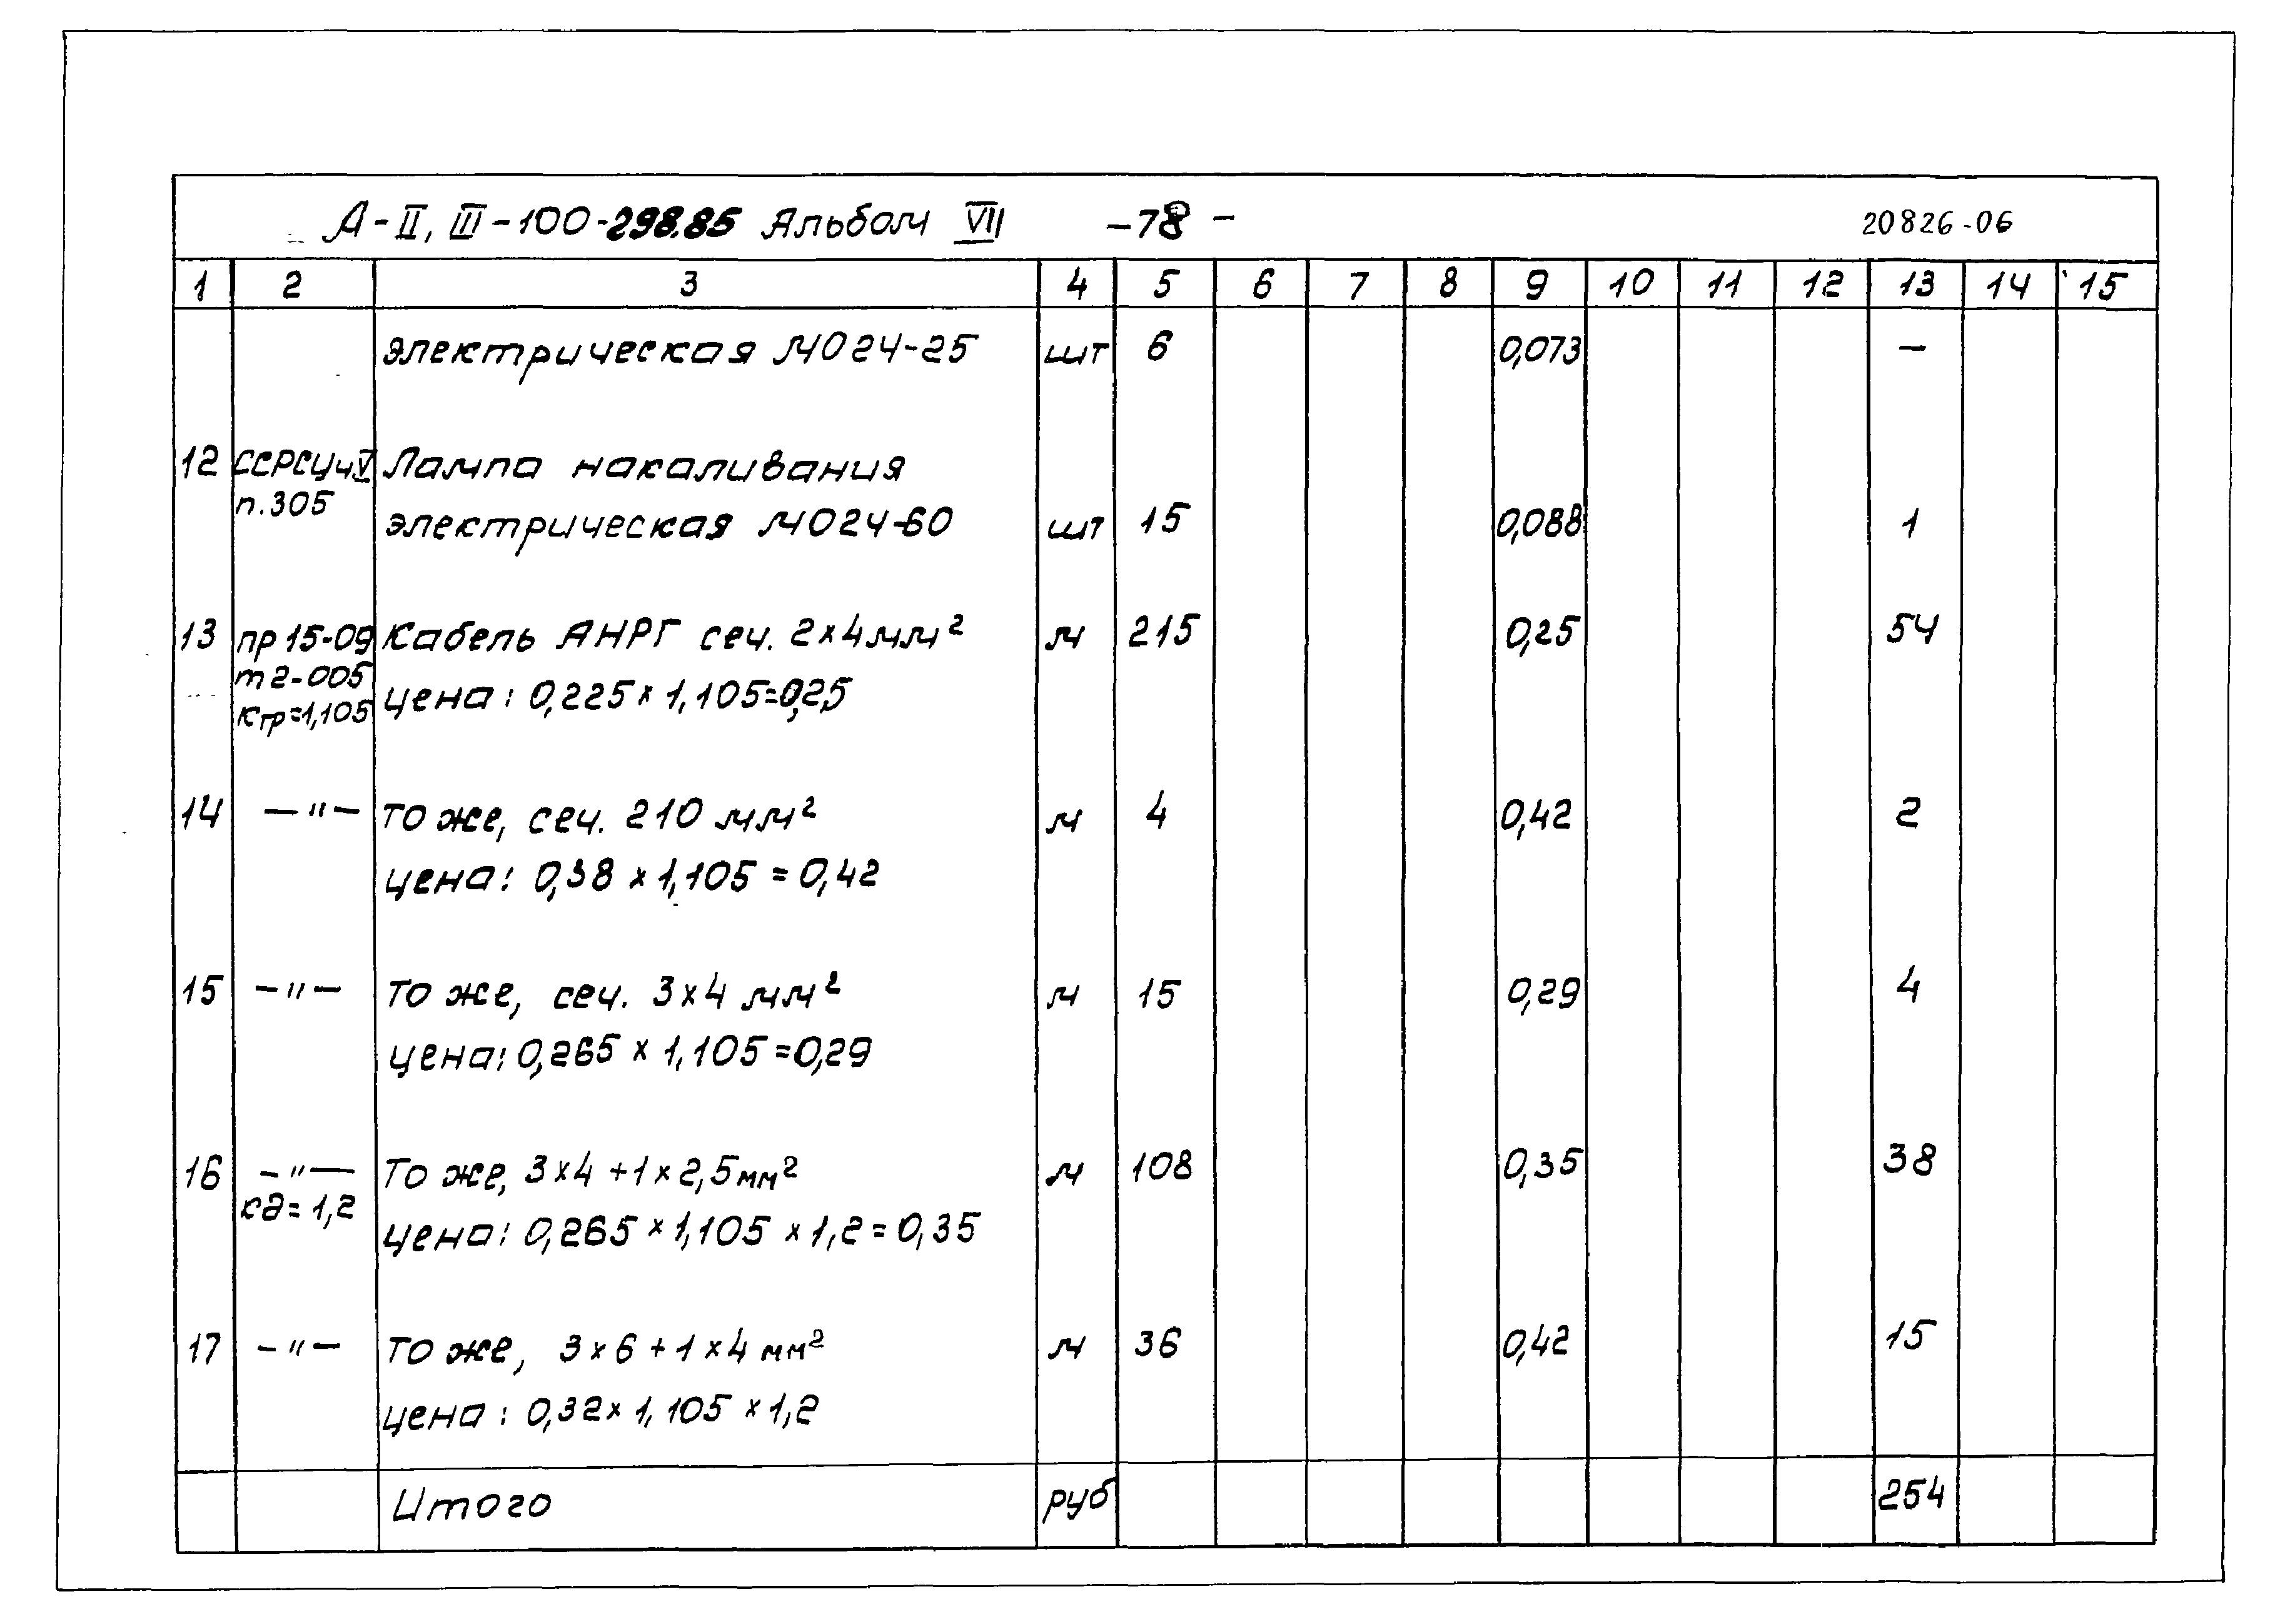 А-II, III-100-298.85 Альбом VII -78- 20826-06
1 2 3 4 5 6 7 8 9 10 11 12 13 14 15
электрическая МО24-25 шт 6 0,073 —
12 ССРСЦч.V Лампа накаливания
п.305 электрическая МО24-60 шт 15 0,088 1
13 пр 15-09 Кабель АНРГ сеч. 2×4мм² м 215 0,25 54
т2-005 цена: 0,225×1,105=0,25
Ктр=1,105
14 —"— то же, сеч. 210 мм² м 4 0,42 2
цена: 0,38×1,105=0,42
15 —"— то же, сеч. 3×4 мм² м 15 0,29 4
цена: 0,265×1,105=0,29
16 —"— То же, 3×4+1×2,5мм² м 108 0,35 38
кд=1,2 цена: 0,265×1,105×1,2=0,35
17 —"— то же, 3×6+1×4мм² м 36 0,42 15
цена: 0,32×1,105×1,2
Итого руб 254